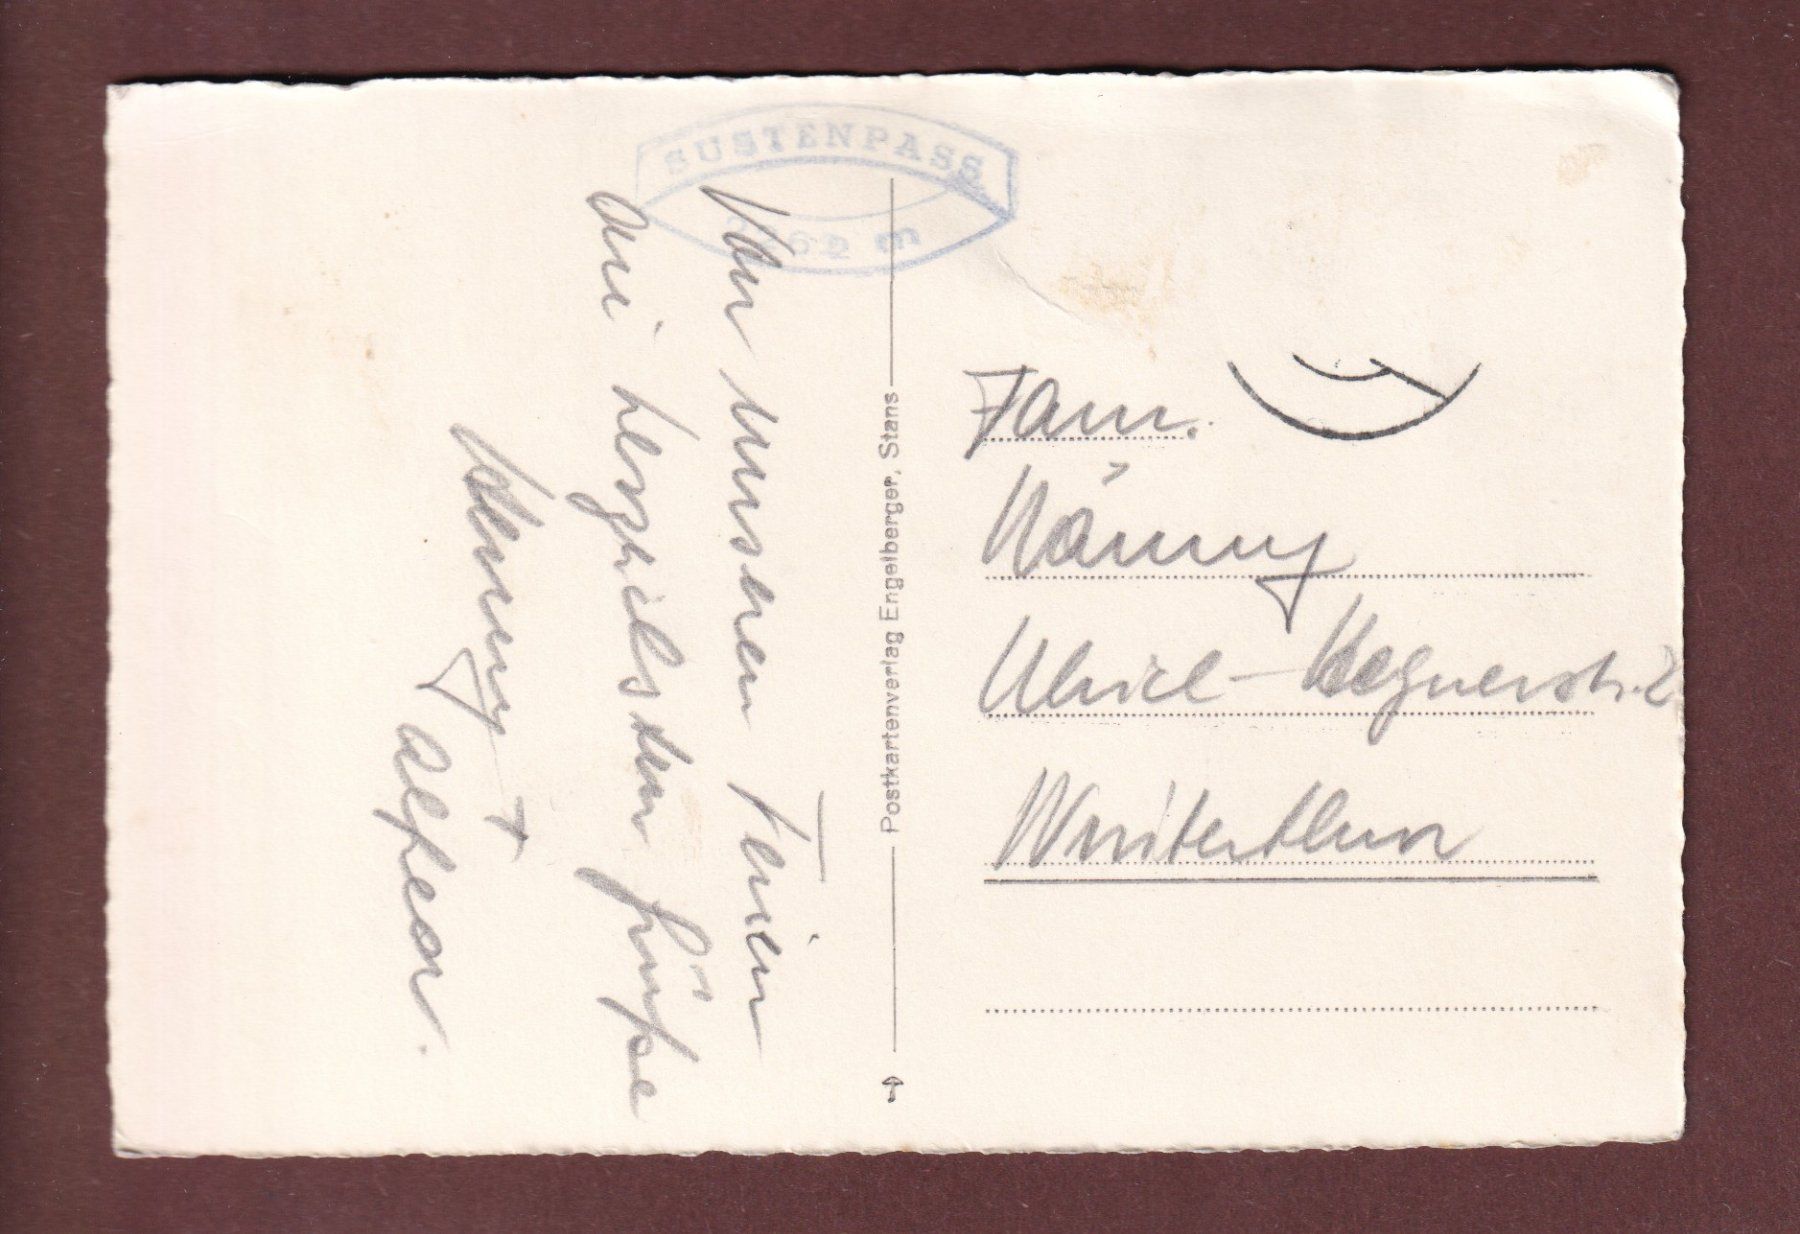 SUSTENPASS
2262 m
Von unseren Ferien
die herzlichsten Grüsse
+
Postkartenverlag Engelberger, Stans
Fam.
Nänny
Ulrich-Hegnerstr. 2
Winterthur